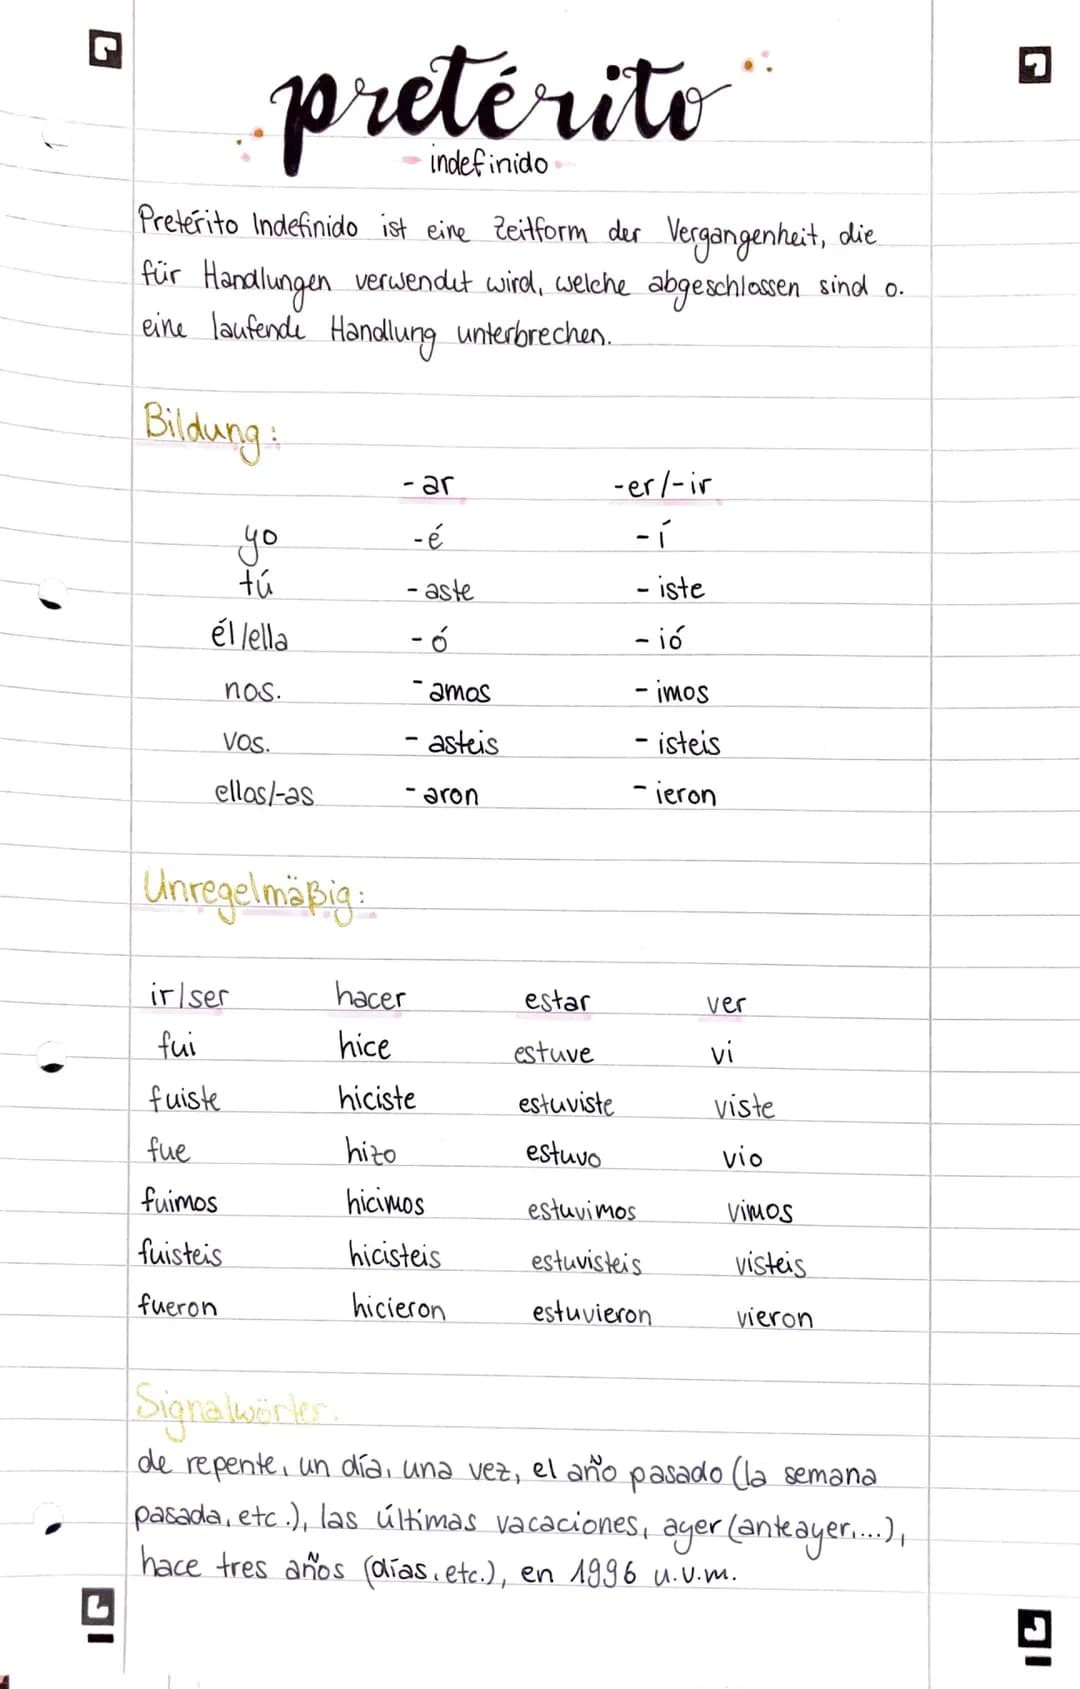 pretérito
indefinido
Pretérito Indefinido ist eine Zeitform der Vergangenheit, die
für Handlungen verwendet wird, welche abgeschlossen sind o.
eine laufende Handlung unterbrechen.
Bildung:
-ar -er/-ir
yo -é -í
tú -aste -iste
él/ella -ó -ió
nos. -amos -imos
vos. -asteis -isteis
ellos/-as -aron -ieron
Unregelmäßig:
ir/ser hacer estar ver
fui hice estuve vi
fuiste hiciste estuviste viste
fue hizo estuvo vio
fuimos hicimos estuvimos vimos
fuisteis hicisteis estuvisteis visteis
fueron hicieron estuvieron vieron
Signalwörter:
de repente, un día, una vez, el año pasado (la semana
pasada, etc.), las últimas vacaciones, ayer (anteayer,...),
hace tres años (días, etc.), en 1996 u.v.m.